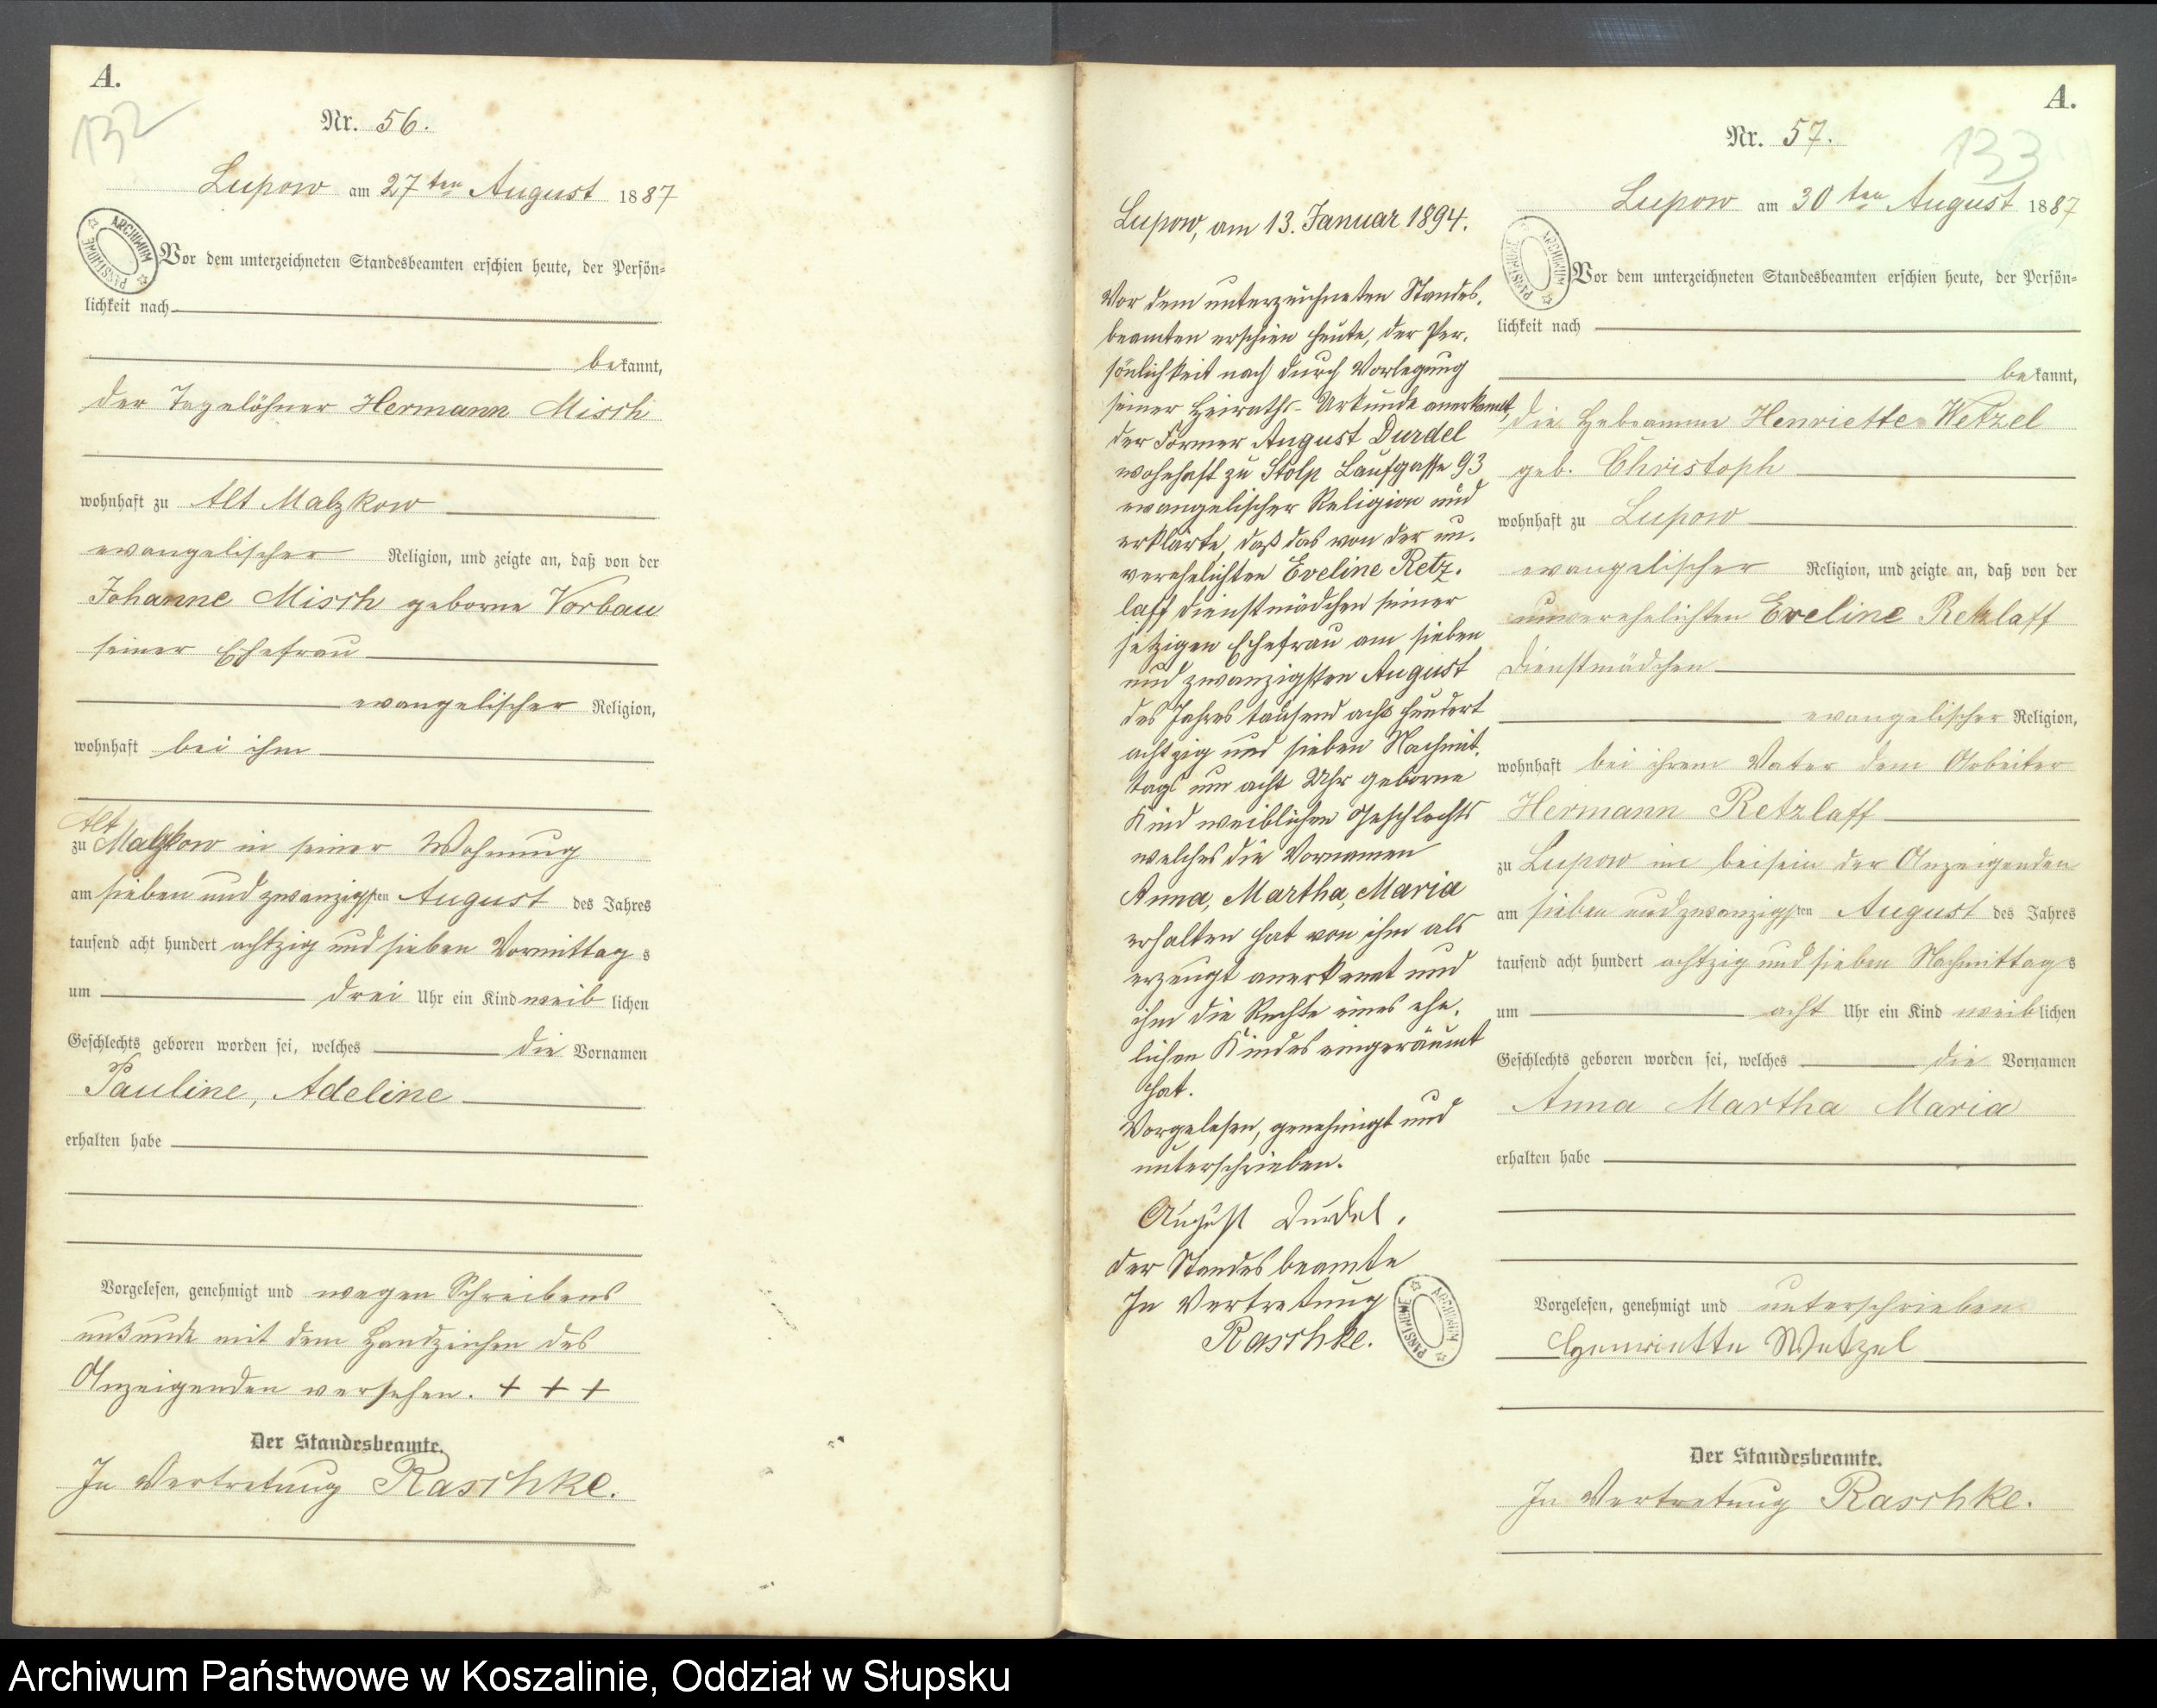 A.
132
Nr. 56.
Lupow am 27ten August 1887
Vor dem unterzeichneten Standesbeamten erschien heute, der Persön-
lichkeit nach
bekannt,
der Tagelöhner Hermann Misch
wohnhaft zu Alt Malzkow
evangelischer Religion, und zeigte an, daß von der
Johanne Misch geborne Vorbau
seiner Ehefrau
evangelischer Religion,
wohnhaft bei ihm
Alt
zu Malzkow in seiner Wohnung
am sieben und zwanzigsten August des Jahres
tausend acht hundert achtzig und sieben Vormittags
um drei Uhr ein Kind weiblichen
Geschlechts geboren worden sei, welches die Vornamen
Pauline, Adeline
erhalten habe
Vorgelesen, genehmigt und wegen Schreibens
unkunde mit dem Handzeichen des
Anzeigenden versehen. + + +
Der Standesbeamte.
In Vertretung Raschke.
Lupow, am 13. Januar 1894.
Vor dem unterzeichneten Standes-
beamten erschien heute, der Per-
sönlichkeit nach durch Vorlegung
seiner Heiraths-Urkunde anerkannt,
der Former August Durdel
wohnhaft zu Stolp Laufgasse 93
evangelischer Religion und
erklärte, daß das von der un-
verehelichten Eveline Retz-
laff Dienstmädchen seiner
jetzigen Ehefrau am sieben
und zwanzigsten August
des Jahres tausend acht hundert
achtzig und sieben Nachmit-
tags um acht Uhr geborne
Kind weiblichen Geschlechts
welches die Vornamen
Anna, Martha, Maria
erhalten hat von ihm als
erzeugt anerkannt und
ihm die Rechte eines ehe-
lichen Kindes eingeräumt
hat.
Vorgelesen, genehmigt und
unterschrieben.
August Durdel.
der Standesbeamte
In Vertretung
Raschke.
A.
133
Nr. 57.
Lupow am 30ten August 1887
Vor dem unterzeichneten Standesbeamten erschien heute, der Persön-
lichkeit nach
bekannt,
die Hebeamme Henriette Wetzel
geb. Christoph
wohnhaft zu Lupow
evangelischer Religion, und zeigte an, daß von der
unverehelichten Eveline Retzlaff
Dienstmädchen
evangelischer Religion,
wohnhaft bei ihrem Vater dem Arbeiter
Hermann Retzlaff
zu Lupow im beisein der Anzeigenden
am sieben und zwanzigsten August des Jahres
tausend acht hundert achtzig und sieben Nachmittags
um acht Uhr ein Kind weiblichen
Geschlechts geboren worden sei, welches die Vornamen
Anna Martha Maria
erhalten habe
Vorgelesen, genehmigt und unterschrieben
Henriette Wetzel
Der Standesbeamte.
In Vertretung Raschke.
Archiwum Państwowe w Koszalinie, Oddział w Słupsku